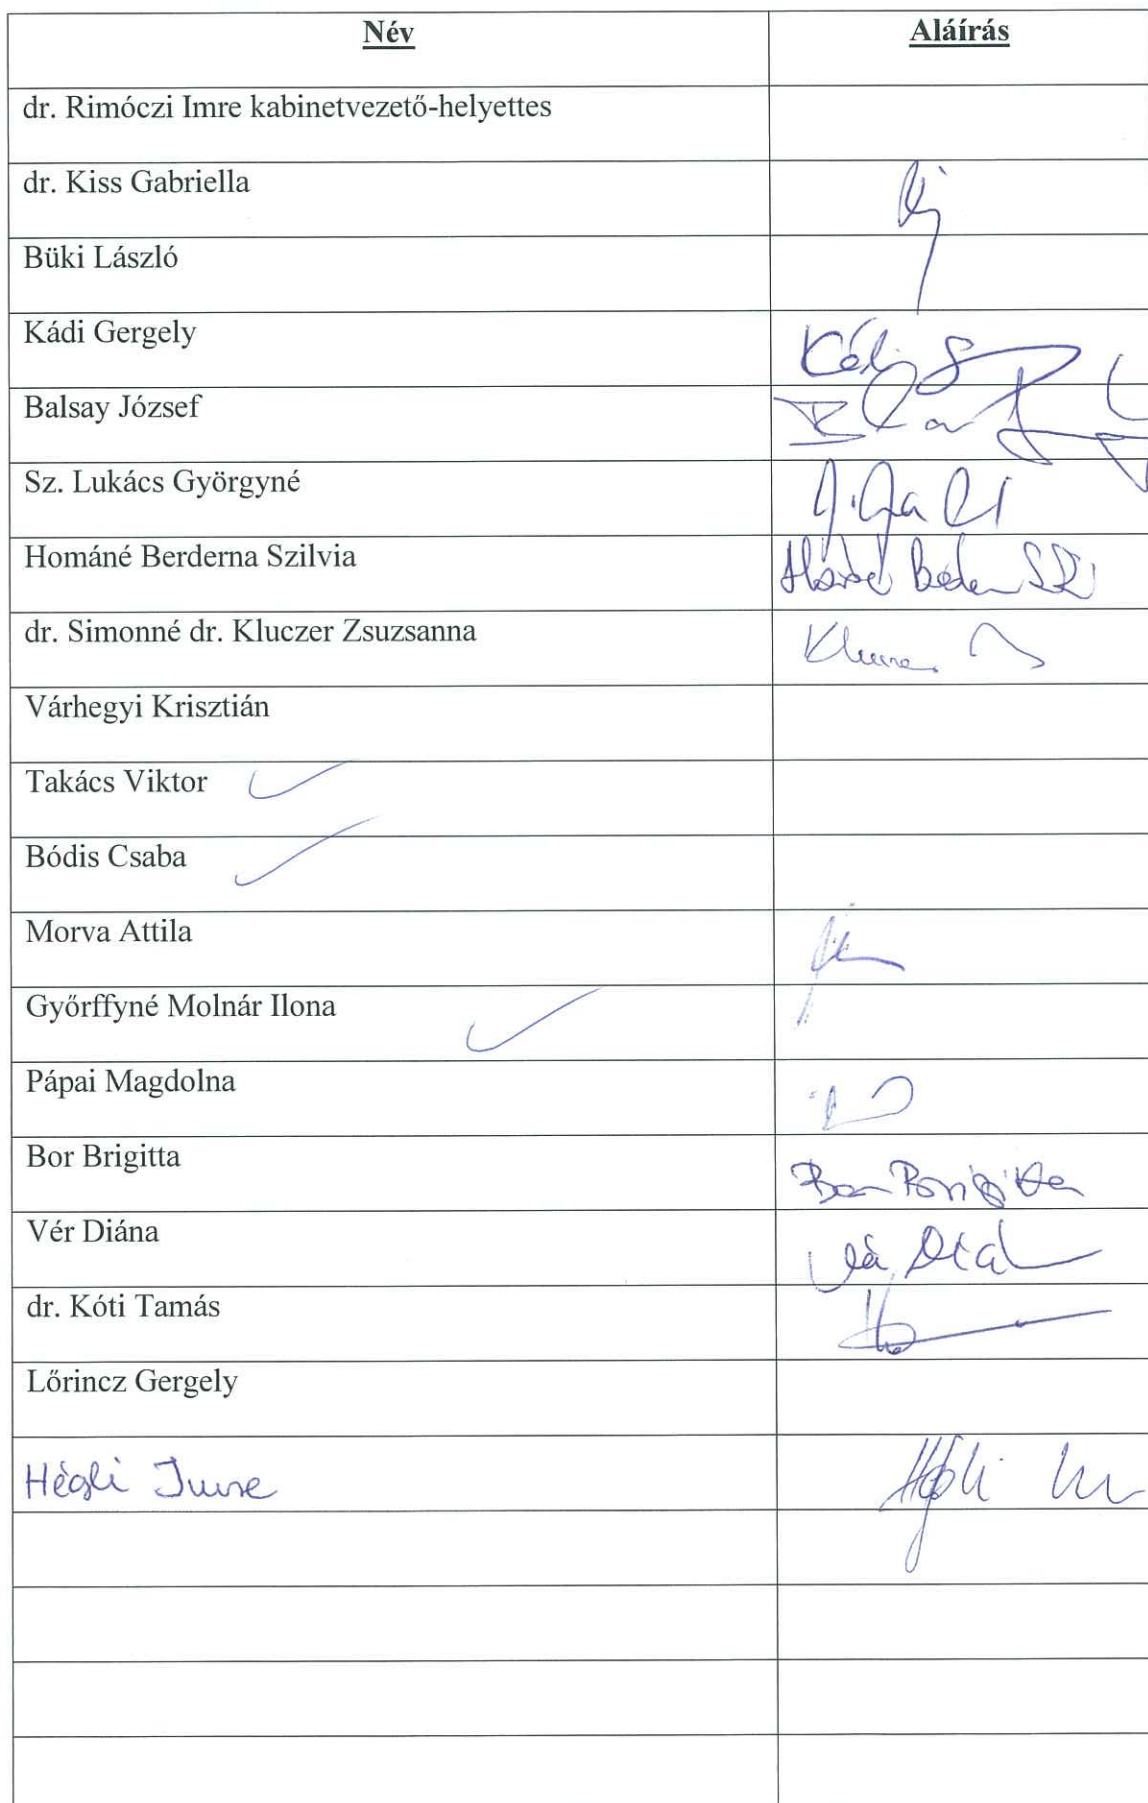 Név Aláírás
dr. Rimóczi Imre kabinetvezető-helyettes
dr. Kiss Gabriella
Büki László
Kádi Gergely
Balsay József
Sz. Lukács Györgyné
Hománé Berderna Szilvia
dr. Simonné dr. Kluczer Zsuzsanna
Várhegyi Krisztián
Takács Viktor
Bódis Csaba
Morva Attila
Győrffyné Molnár Ilona
Pápai Magdolna
Bor Brigitta Bor Brigitta
Vér Diána
dr. Kóti Tamás
Lőrincz Gergely
Hégli Imre Hégli